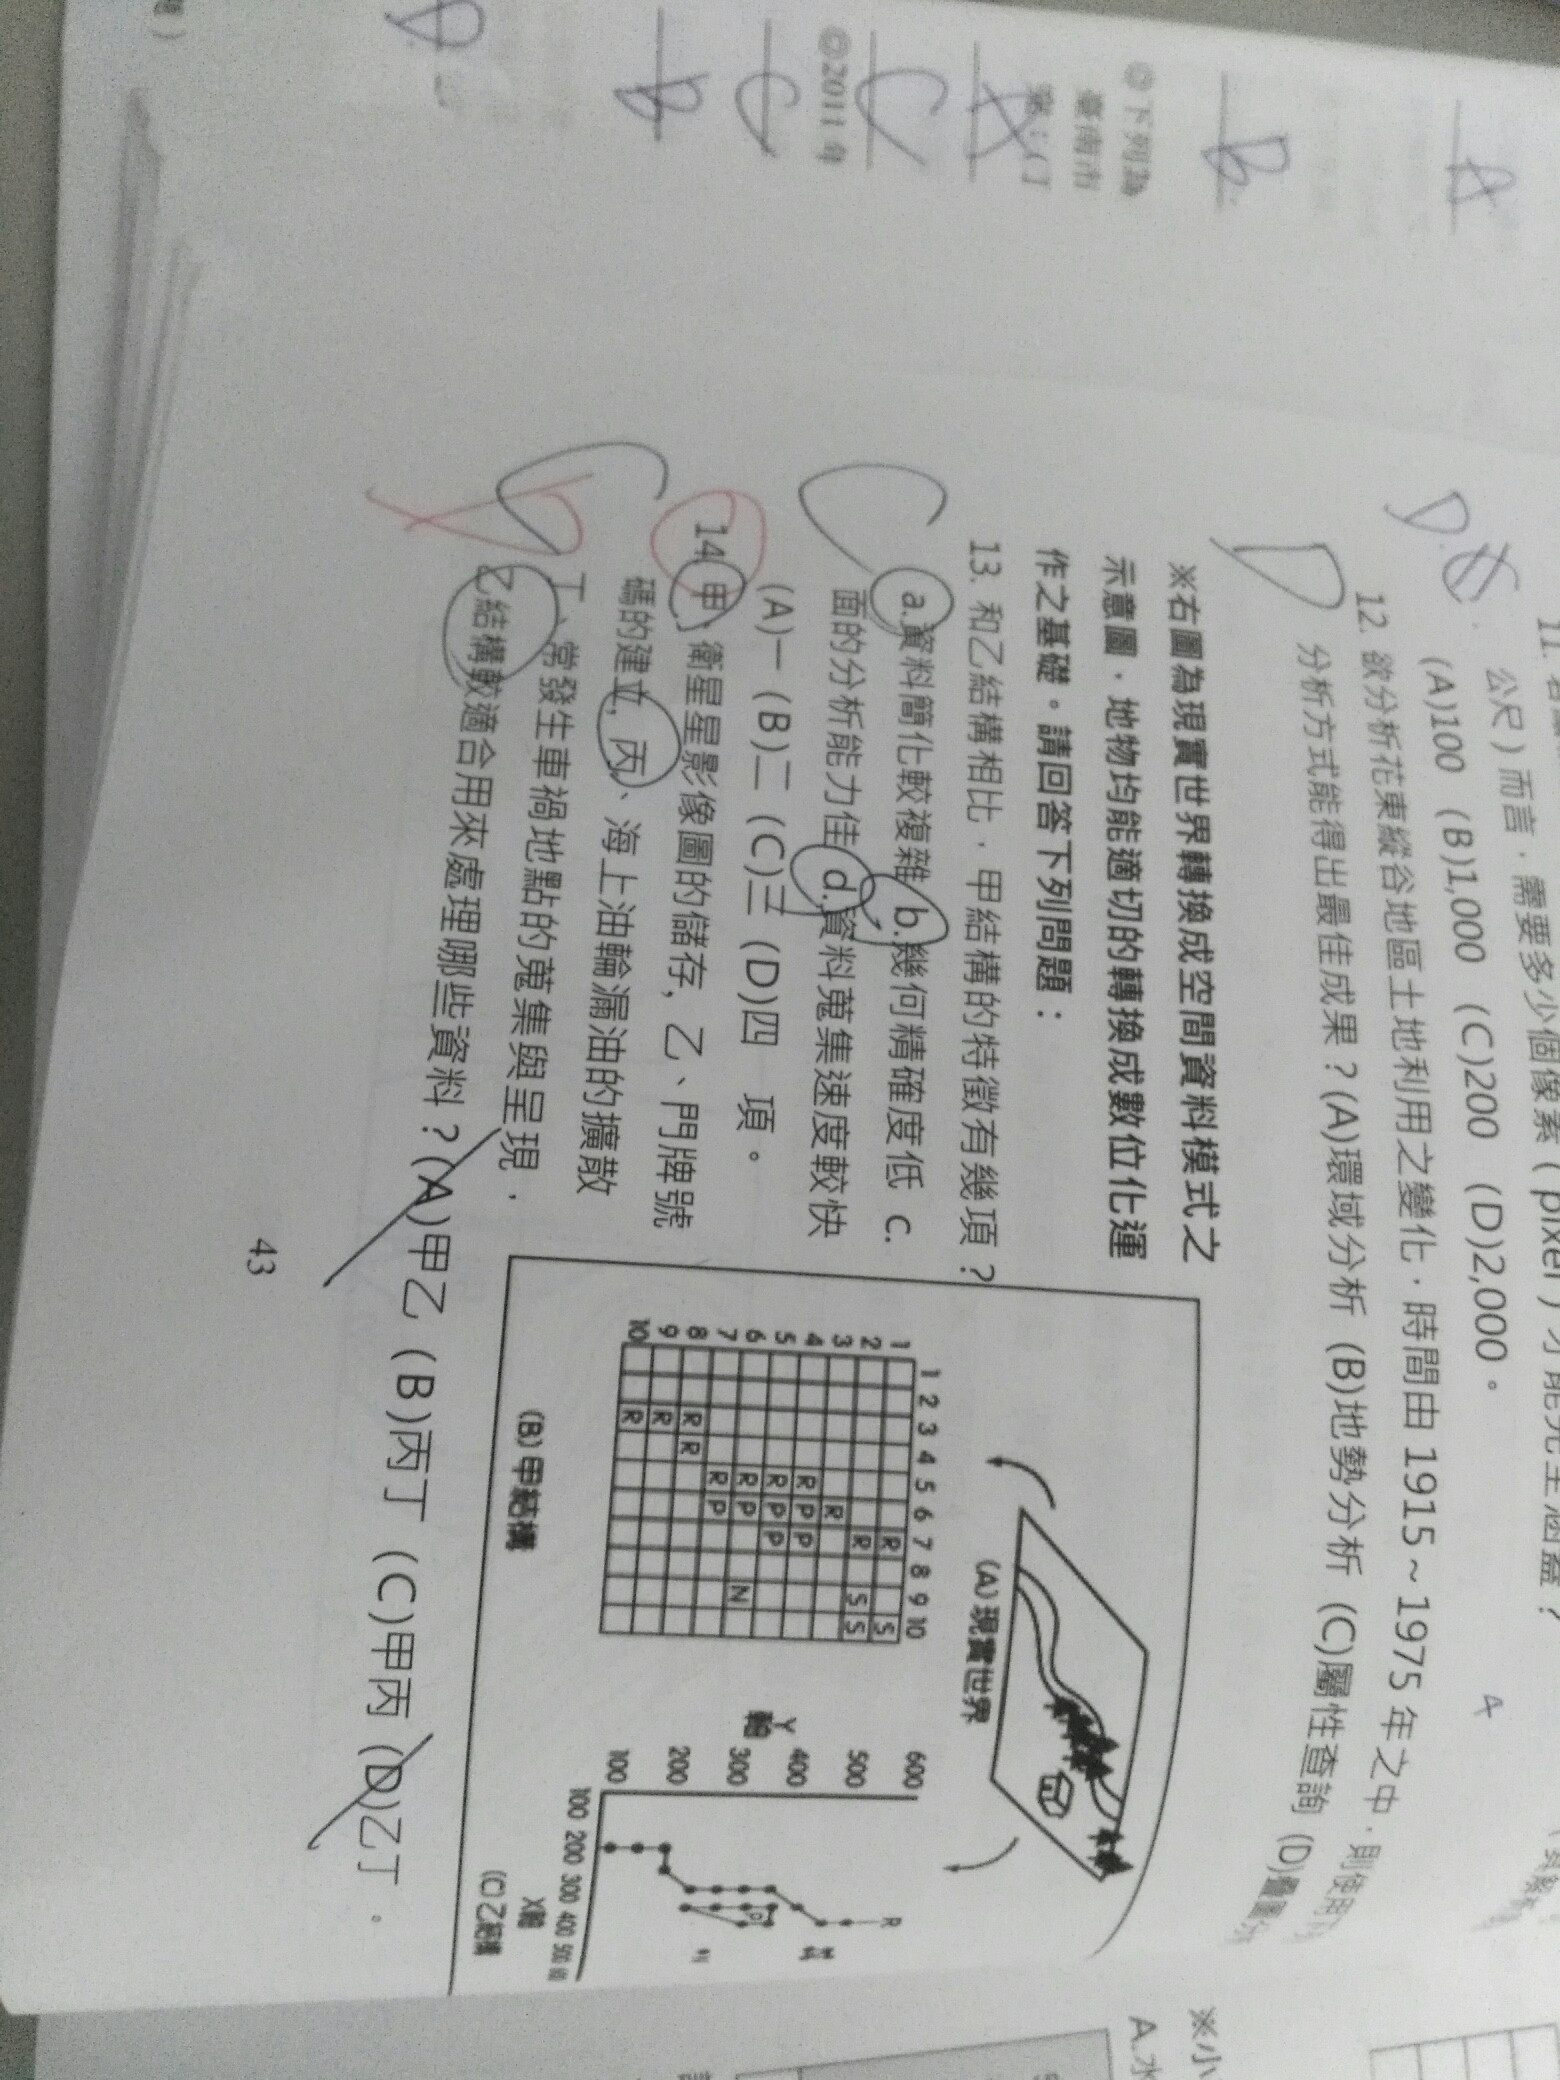 公尺）而言，需要多少個像素（pixel）才能完全涵蓋？
(A)100 (B)1,000 (C)200 (D)2,000。
12. 欲分析花東縱谷地區土地利用之變化，時間由 1915～1975 年之中，則使用
分析方式能得出最佳成果？(A)環域分析 (B)地勢分析 (C)屬性查詢 (D)疊圖分
D
A
D
※右圖為現實世界轉換成空間資料模式之
示意圖，地物均能適切的轉換成數位化運
作之基礎。請回答下列問題：
13. 和乙結構相比，甲結構的特徵有幾項？
a.資料簡化較複雜 b.幾何精確度低 c.
面的分析能力佳 d.資料蒐集速度較快
(A)一 (B)二 (C)三 (D)四 項。
C
14. 甲、衛星星影像圖的儲存，乙、門牌號
碼的建立，丙、海上油輪漏油的擴散
丁、常發生車禍地點的蒐集與呈現，
乙結構較適合用來處理哪些資料？(A)甲乙 (B)丙丁 (C)甲丙 (D)乙丁。
(A)現實世界
1 2 3 4 5 6 7 8 9 10
1 R S
2 R S S
3 R
4 R P P
5 R P P
6 R P N
7 R P
8 R R
9 R
10 R
(B)甲結構
Y
軸
600
500
400
300
200
100
100 200 300 400 500
R
P
X軸
(C)乙結構
43
◎下列為
臺南市
◎2011 年
A
B
A
C
C
※小
A.水